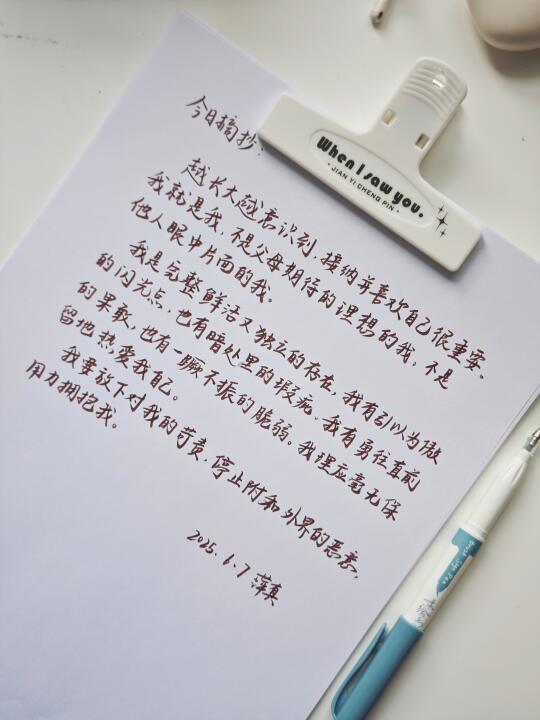 今日摘抄:
越长大越意识到,接纳并喜欢自己很重要。
我就是我,不是父母期待的理想的我,不是
他人眼中片面的我。
我是完整鲜活又独立的存在,我有引以为傲
的闪光点,也有暗处里的瑕疵。我有勇往直前
的果敢,也有一蹶不振的脆弱。我理应毫无保
留地热爱我自己。
我要放下对我的苛责,停止附和外界的恶意,
用力拥抱我。
2025.6.7 萍真
When I saw you.
· JIAN YI CHENG PIN ·